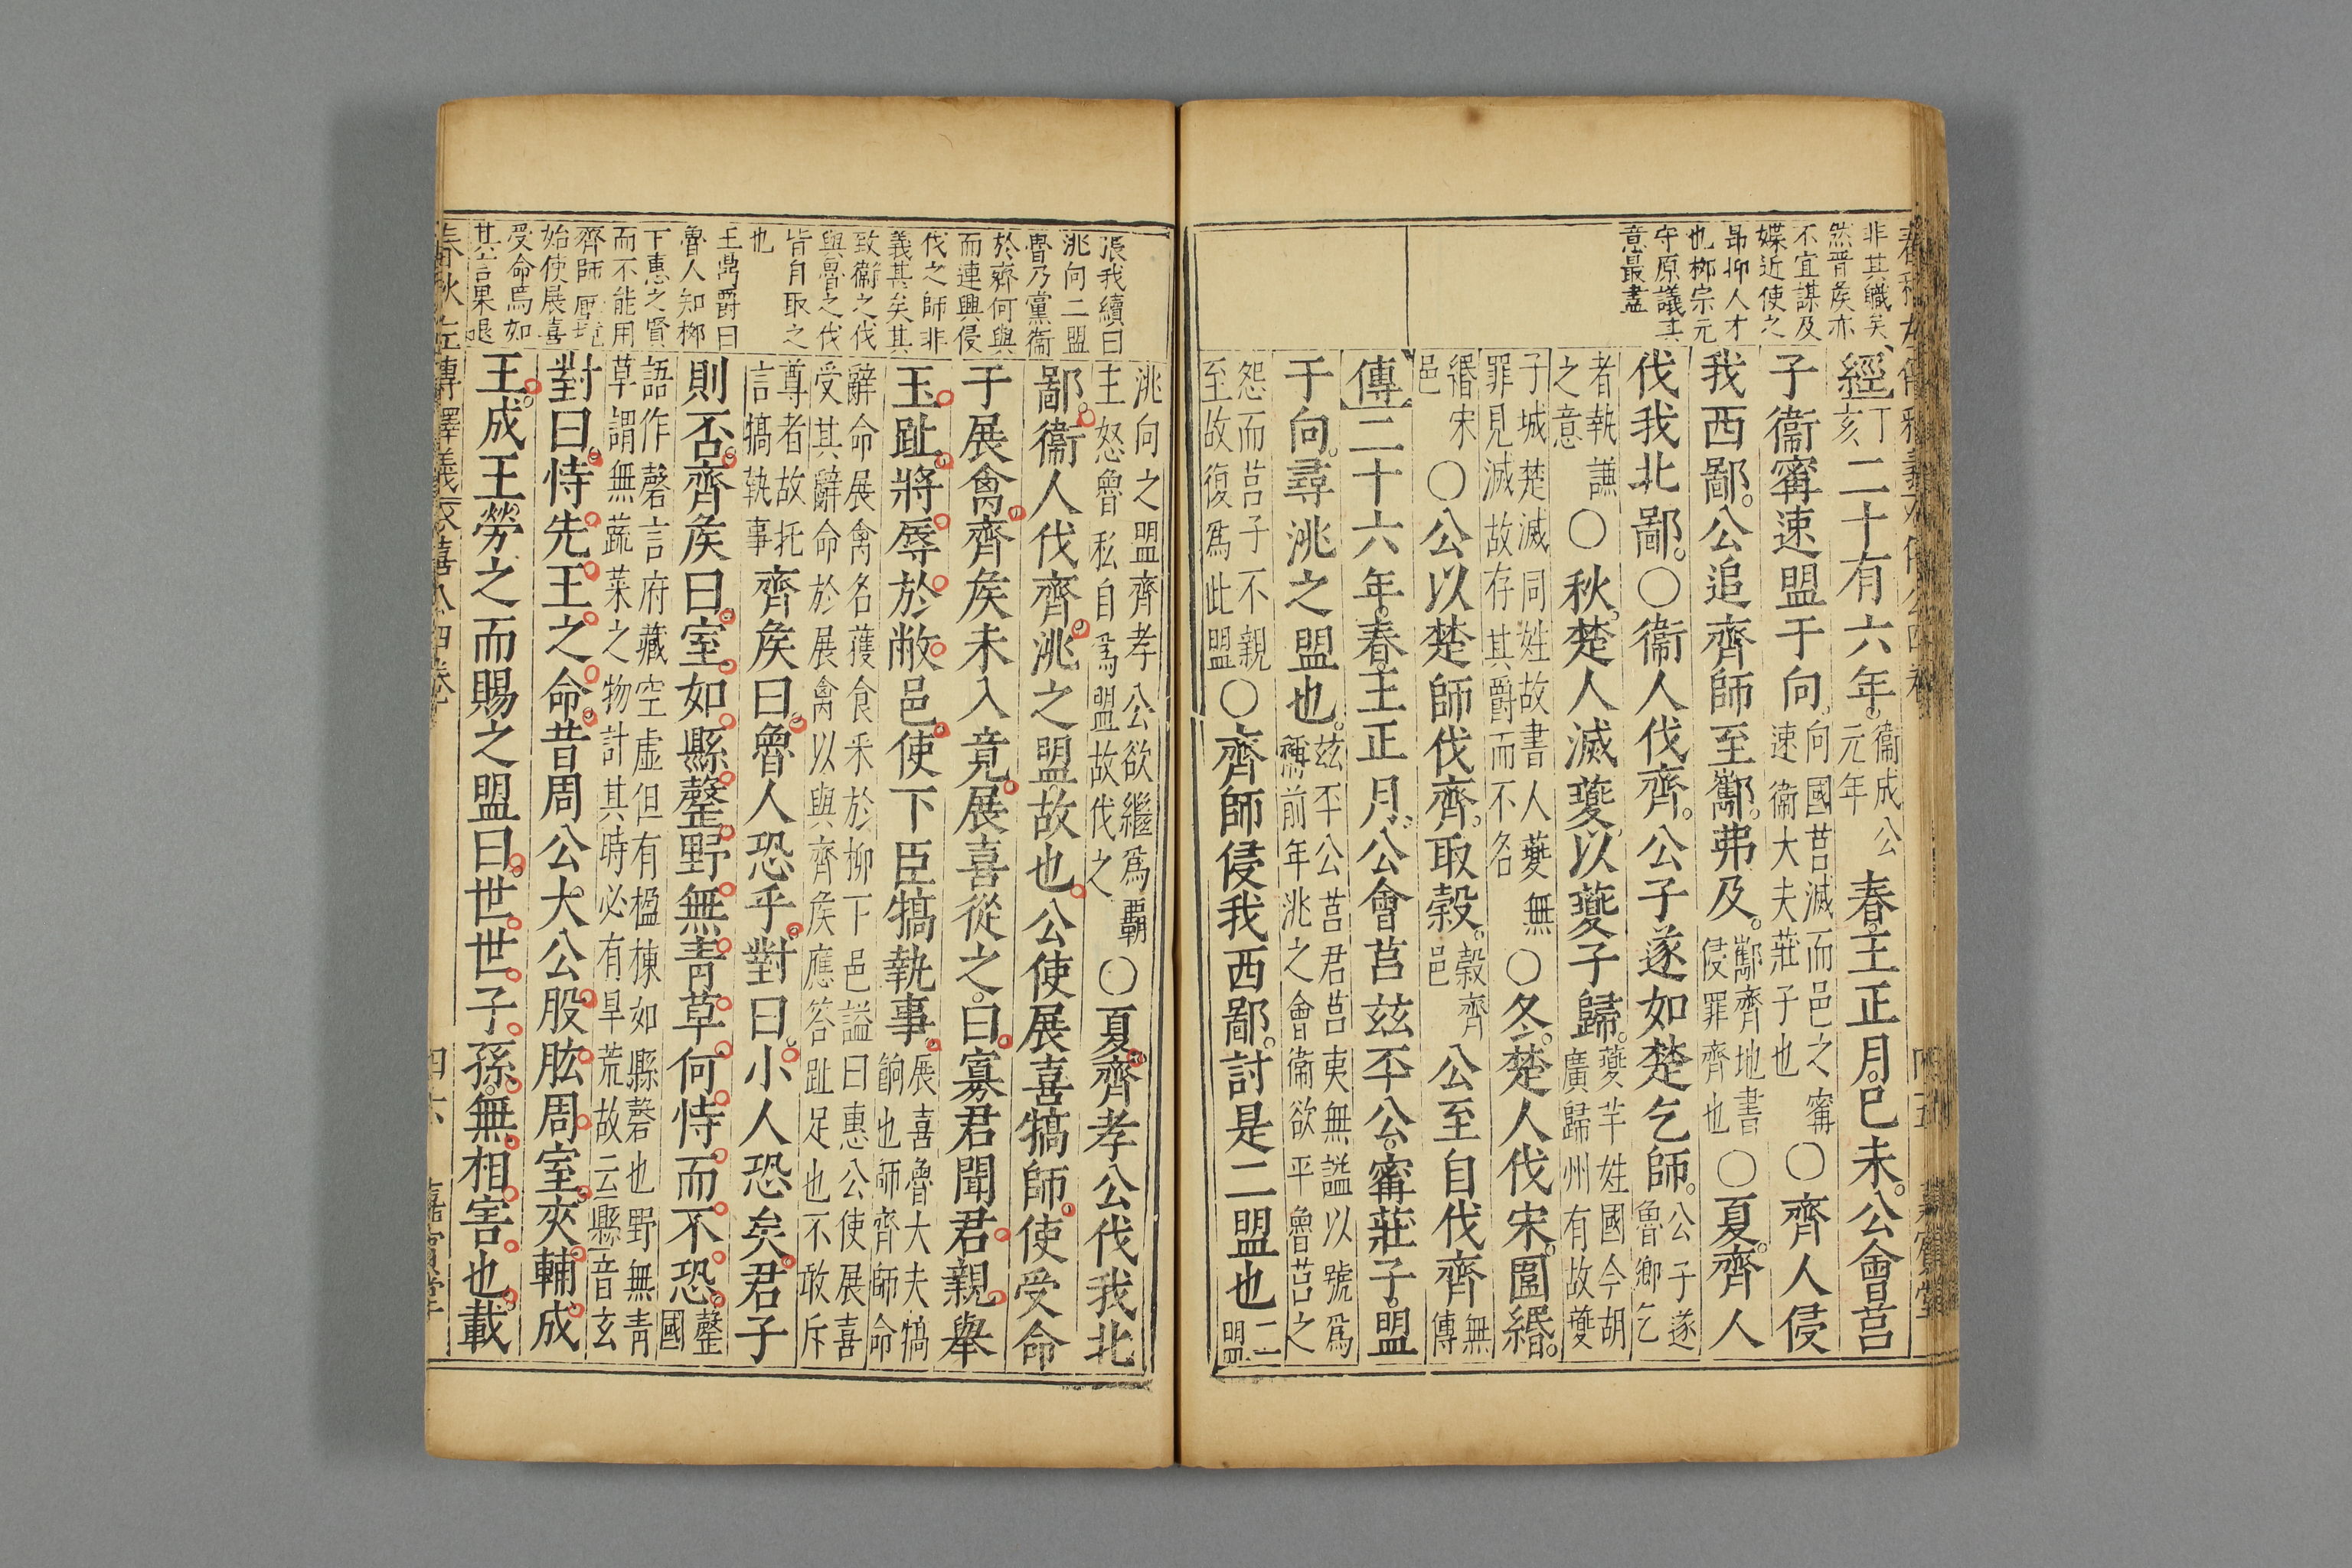 非其職矣
然晋矦亦
不宜謀及
媟近使之
昂抑人才
也栁宗元
守原議其
意最盡
經丁亥二十有六年。衞成公元年春。王正月。已未。公會莒
子衞甯速盟于向。向國莒滅而邑之甯速衞大夫莊子也〇齊人侵
我西鄙。公追齊師至酅。弗及。酅齊地書侵罪齊也〇夏。齊人
伐我北鄙。〇衞人伐齊。公子遂如楚乞師。公子遂魯卿乞
者執謙之意〇秋。楚人滅夔。以夔子歸。夔芉姓國今胡廣歸州有故夔
子城楚滅同姓故書人夔無罪見滅故存其爵而不名〇冬。楚人伐宋。圍緡。
緡宋邑〇公以楚師伐齊。取榖。榖齊邑公至自伐齊無傳
傳二十六年。春。王正月。公會莒兹㔻公。甯莊子。盟
于向。尋洮之盟也。兹㔻公莒君莒夷無謚以號爲稱前年洮之會衞欲平魯莒之
怨而莒子不親至故復爲此盟〇齊師侵我西鄙。討是二盟也二盟
張我續曰
洮向二盟
魯乃黨衞
於齊何與
而連興侵
伐之師非
義其矣其
致衞之伐
與魯之伐
皆自取之
也
王鼎爵曰
魯人知栁
下惠之賢
而不能用
齊師壓境
始使展喜
受命焉如
其言果退
洮向之盟齊孝公欲繼爲覇主怒魯私自爲盟故伐之〇夏。齊孝公伐我北
鄙。衞人伐齊。洮之盟故也。公使展喜犒師。使受命
于展禽。齊矦未入竟。展喜從之。曰。寡君聞君。親舉
玉趾。將辱於敝邑。使下臣犒執事。展喜魯大夫犒餉也師齊師命
辭命展禽名獲食采於柳下邑謚曰惠公使展喜受其辭命於展禽以與齊矦應答趾足也不敢斥
尊者故托言犒執事齊矦曰。魯人恐乎。對曰。小人恐矣。君子
則否。齊矦曰。室如縣罄。野無青草。何恃而不恐。罄國
語作磬言府藏空虛但有楹棟如縣磬也野無青草謂無蔬菜之物計其時必有旱荒故云縣音玄
對曰。恃先王之命。昔周公。大公。股肱周室。夾輔成
王。成王勞之而賜之盟曰。世世子孫。無相害也。載
春秋左傳
四六